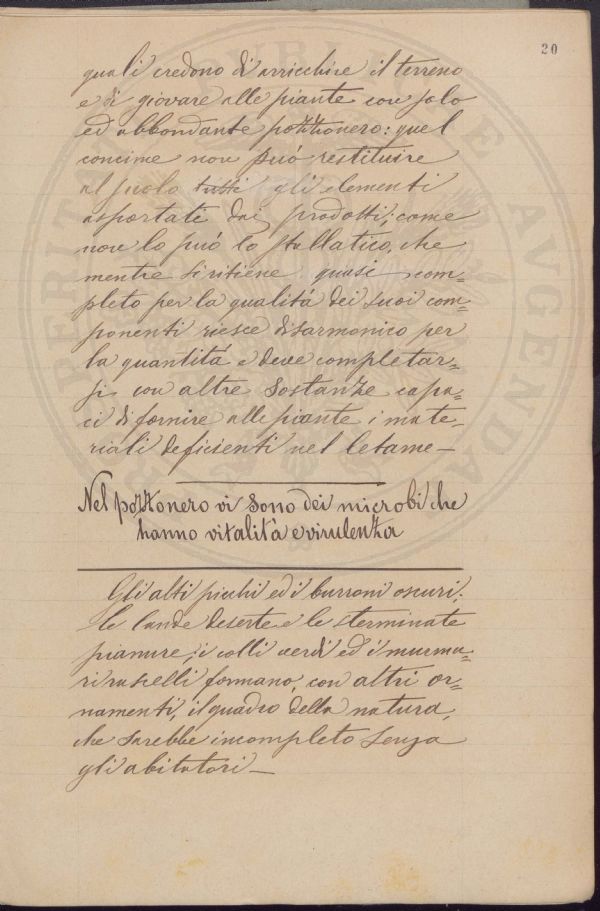 20
quali credono di arricchire il terreno
e di giovare alle piante con solo
ed abbondante pozzonero: quel
concime non può restituire
al suolo tutti gli elementi
asportate dai prodotti; come
non lo può lo stallatico, che
mentre si ritiene quasi com=
pleto per la qualità dei suoi com=
ponenti riesce disarmonico per
la quantità e deve completar=
si con altre sostanze capa=
ci di fornire alle piante i mate=
riali deficienti nel letame—
Nel pozzonero vi sono dei microbi che
hanno vitalità e virulenza
Gli alti picchi ed i burroni oscuri;
le lande deserte e le sterminate
pianure; i colli verdi ed i murmu=
ri ruscelli formano, con altri or=
namenti, il quadro della natura,
che sarebbe incompleto senza
gli abitatori—